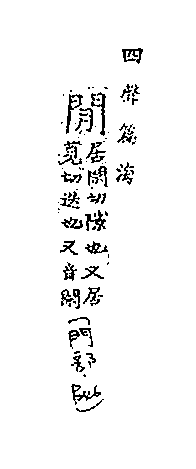 四聲篇海
閒
居閑切隙也又居
莧切迭也又音閑
(門部.B46)